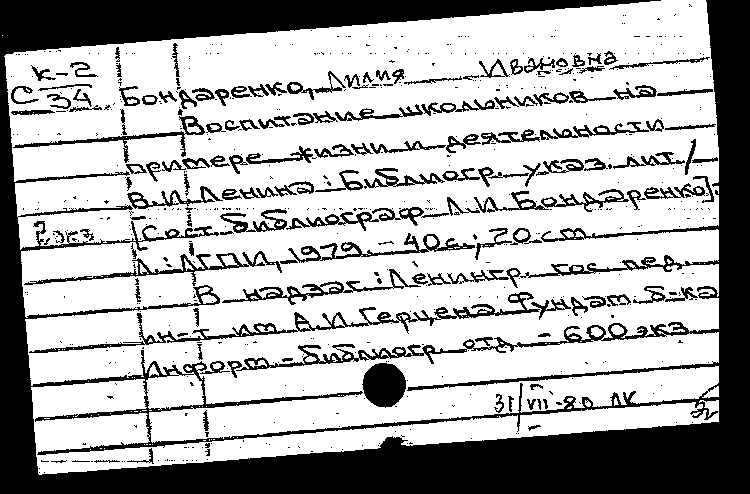 К-2
С 34
Бондаренко, Лилия Ивановна
Воспитание школьников на
примере жизни и деятельности
В.И. Ленина : Библиогр. указ. лит. /
[Сост. библиограф Л.И. Бондаренко].
2 экз.
Л. : ЛГПИ, 1979. - 40 с.; 20 см.
В надзаг. : Ленингр. гос. пед.
ин-т им. А.И. Герцена. Фундам. б-ка
Информ. - библиогр. отд. - 600 экз.
31/VII-80 ЛК